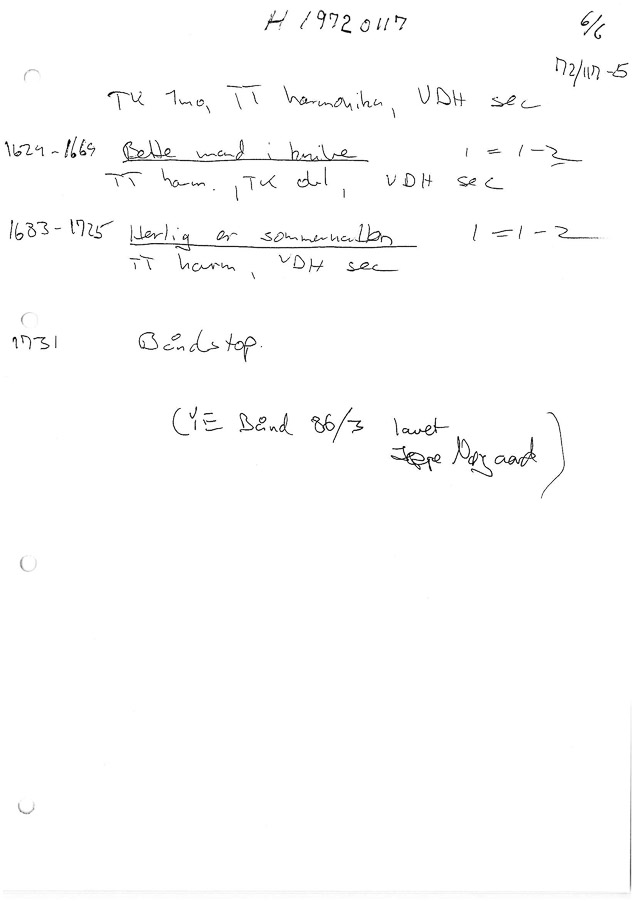 H 1972 0117
6/6
72/117-5
TK 1mo, TT harmonika, VDH sec
1624-1669 Bette mand i knibe 1 = 1-2
TT harm., TK del, VDH sec
1683-1725 Herlig er sommernatten 1 = 1-2
TT harm, VDH sec
1731 Båndstop.
(YE Bånd 86/3 lavet
Jeppe Nørgaard)